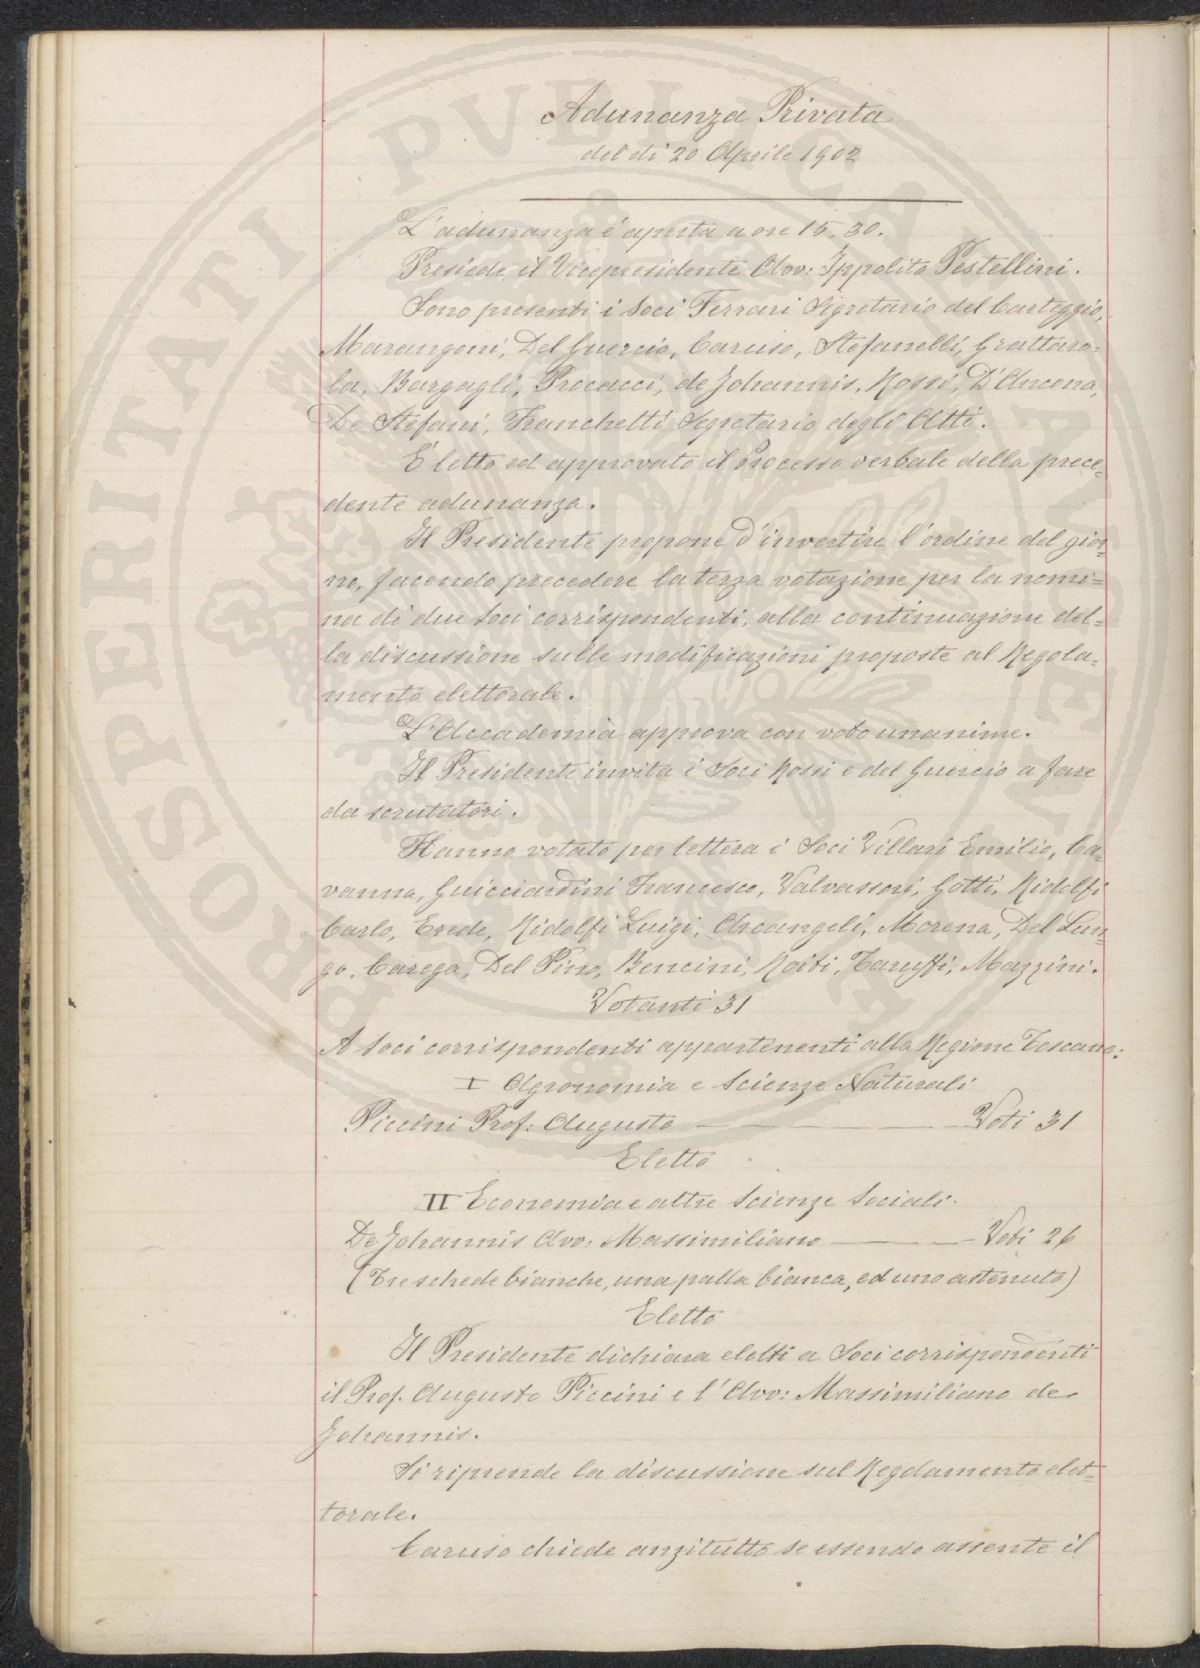 Adunanza Privata
del dì 20 Aprile 1902
L'adunanza è aperta a ore 15.30.
Presiede il Vicepresidente Avv: Ippolito Pestellini.
Sono presenti i Soci Ferrari Segretario del Carteggio,
Marangoni, Del Guercio, Caruso, Stefanelli, Grattaro=
la, Bargagli, Procacci, de Johannis, Rossi, D'Ancona,
De Stefani, Franchetti Segretario degli Atti.
È letto ed approvato il Processo verbale della prece=
dente adunanza.
Il Presidente propone d'invertire l'ordine del gior=
no, facendo precedere la terza votazione per la nomi=
na di due Soci corrispondenti, alla continuazione del=
la discussione sulle modificazioni proposte al Regola=
mento elettorale.
L'Accademia approva con voto unanime.
Il Presidente invita i Soci Rossi e del Guercio a fare
da scrutatori.
Hanno votato per lettera i Soci Villari Emilio, Ca=
vanna, Guicciardini Francesco, Valvassori, Gotti, Ridolfi
Carlo, Erede, Ridolfi Luigi, Arcangeli, Morena, Del Lun=
go, Carega, Del Pino, Bencini, Roiti, Taruffi, Mazzini.
Votanti 31
A Soci corrispondenti appartenenti alla Regione Toscana:
I Agronomia e Scienze Naturali
Piccini Prof: Augusto — Voti 31
Eletto
II Economia e altre Scienze Sociali.
De Johannis Avv: Massimiliano — Voti 26
(Tre schede bianche, una palla bianca, ed uno astenuto)
Eletto
Il Presidente dichiara eletti a Soci corrispondenti
il Prof. Augusto Piccini e l'Avv: Massimiliano de
Johannis.
Si riprende la discussione sul Regolamento elet=
torale.
Caruso chiede anzitutto se essendo assente il
PROSPERITATI PVBLICAE AVGENDAE